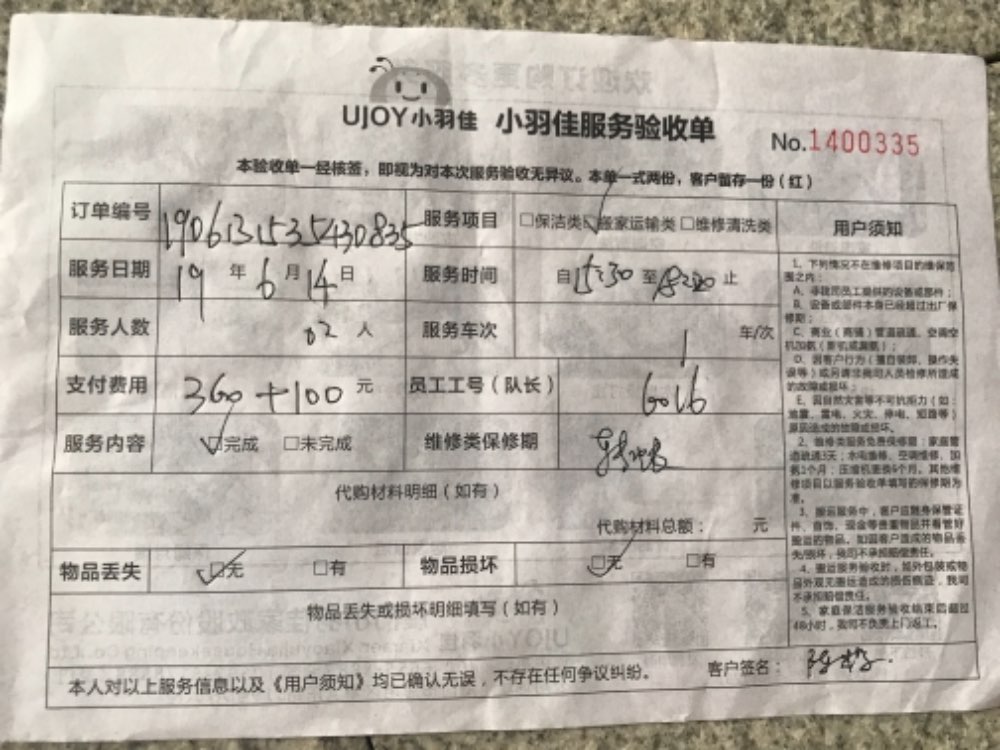 UJOY小羽佳 小羽佳服务验收单 No.1400335
本验收单一经核签，即视为对本次服务验收无异议。本单一式两份，客户留存一份（红）
订单编号 1906131535430835 服务项目 □保洁类 □搬家运输类 □维修清洗类 用户须知
服务日期 19 年 6 月 14 日 服务时间 自 15:30 至 止
服务人数 02 人 服务车次 1 车/次
支付费用 360+100 元 员工工号（队长） 6016
服务内容 ☑完成 □未完成 维修类保修期
代购材料明细（如有）
代购材料总额： 元
物品丢失 ☑无 □有 物品损坏 ☑无 □有
物品丢失或损坏明细填写（如有）
本人对以上服务信息以及《用户须知》均已确认无误，不存在任何争议纠纷。 客户签名：
1、下列情况不在维修项目的维保范
围之内：
A、非我司员工提供的设备或部件；
B、设备或部件本身已经超过出厂保
修期；
C、商业（商铺）管道疏通、空调空
D、因客户行为（擅自装卸、操作失
误等）或另请非我司人员检修所造成
的故障或损坏；
E、因自然灾害等不可抗拒力（如：
地震、雷电、火灾、停电、短路等）
原因造成的故障或损坏。
2、维修类服务免费保修期：家庭管
道疏通3天；水电维修、空调维修、加
氨1个月；压缩机更换6个月。其他维
修项目以服务验收单填写的保修期为
准。
3、搬运服务中，客户应随身保管证
件、首饰、现金等贵重物品并看管好
搬运的物品。如因客户造成的物品丢
失/毁坏，我司不承担赔偿责任。
4、搬运服务验收时，如外包装或物
品外观无搬运造成的损伤痕迹，我司
不承担赔偿责任。
5、家庭保洁服务验收结束后超过
48小时，我司不负责上门返工。